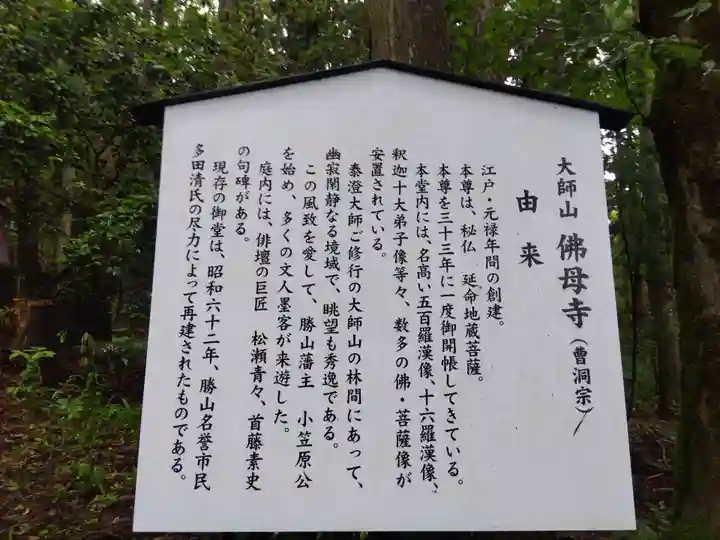 大師山 佛母寺(曹洞宗)
由来
江戸・元禄年間の創建。
本尊は、秘仏 延命地蔵菩薩。
本尊を三十三年に一度御開帳してきている。
本堂内には、名高い五百羅漢像、十六羅漢像、
釈迦十大弟子像等々、数多の佛・菩薩像が
安置されている。
泰澄大師ご修行の大師山の林間にあって、
幽寂閑静なる境域で、眺望も秀逸である。
この風致を愛して、勝山藩主 小笠原公
を始め、多くの文人墨客が来遊した。
庭内には、俳壇の巨匠 松瀬青々、首藤素史
の句碑がある。
現存の御堂は、昭和六十二年、勝山名誉市民
多田清氏の尽力によって再建されたものである。